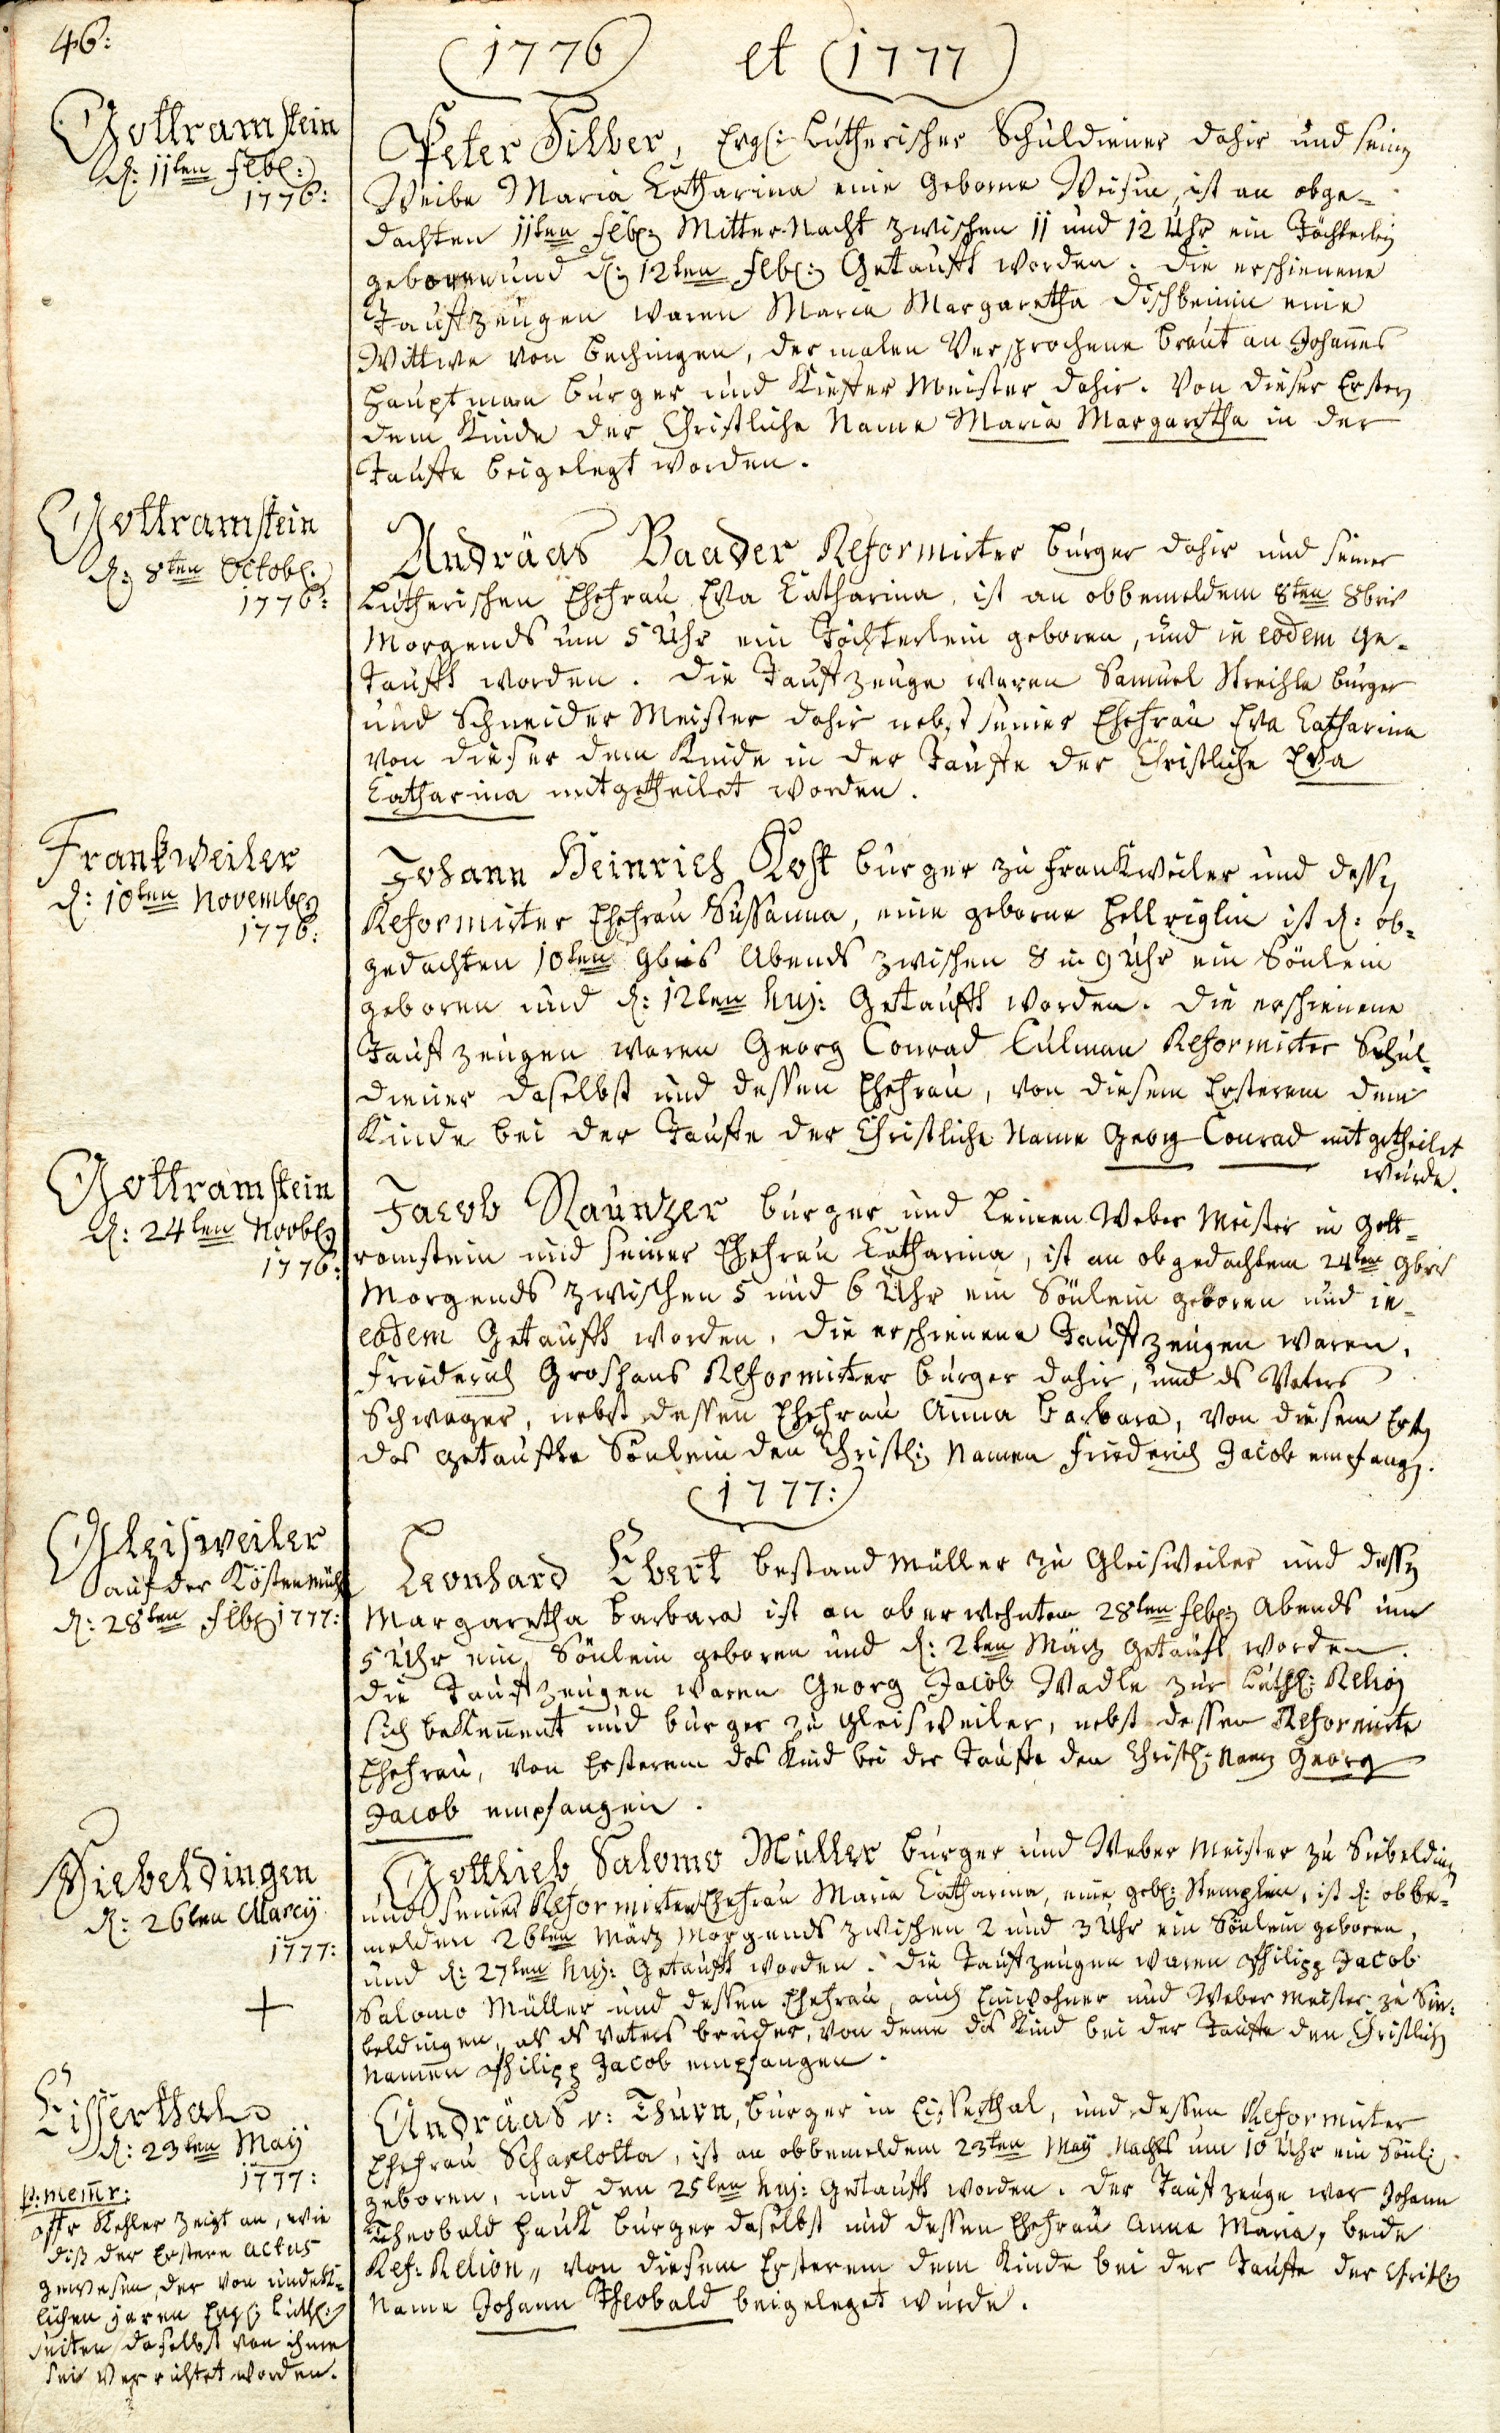 46:
1776 et 1777
Gottramstein
d: 11ten Febr:
1776:
Peter Silber, Evgl: Lutherischer Schuldiener dahir und seiner
Weibe Maria Catharina eine Geborne Weisin, ist an obge-
dachten 11ten Febr: Mitter-Nacht zwischen 11 und 12 Uhr ein Töchterlein
geboren und d: 12ten Febr: Getaufft worden. Die erschienene
Taufzeugen waren Maria Margaretha Dischbeinin eine
Wittwe von Bechingen, dermalen Versprochene Braut an Johannes
Hauptmann Burger und Kieffer Meister dahir. Von dieser Ersten
dem Kinde der Christliche Name Maria Margaretha in der
Tauffe beigelegt worden.
Gottramstein
d: 8ten Octobr:
1776:
Andräas Baader Reformirter Burger dahir und seiner
Lutherischen Ehefrau Eva Catharina, ist an obbemeldem 8ten 8bris
Morgends um 5 Uhr ein Töchterlein geboren, und in eodem ge-
taufft worden. Die Taufzeuge waren Samuel Streichle Burger
und Schneider Meister dahir nebst seiner Ehefrau Eva Catharina
von dieser dem Kinde in der Tauffe der Christliche Eva
Catharina mitgetheilet worden.
Frankweiler
d: 10ten November
1776:
Johann Heinrich Kost Burger zu Frankweiler und dessen
Reformirter Ehefrau Susanna, eine geborne Hellriglin ist d: ob-
gedachten 10ten 9bris Abends zwischen 8 u 9 Uhr ein Sönlein
geboren und d: 12ten huj: Getaufft worden. Die erschienene
Taufzeugen waren Georg Conrad Culman Reformirter Schul-
diener daselbst und dessen Ehefrau, von diesem Ersterem dem
Kinde bei der Tauffe der Christliche Name Georg Conrad mitgetheilet
wurde.
Gottramstein
d: 24ten Novbr:
1776:
Jacob Raunzer Burger und Leinen Weber Meister in Gott-
ramstein und seiner Ehefrau Catharina, ist an obgedachtem 24ten 9bris
Morgends zwischen 5 und 6 Uhr ein Sönlein geboren und in
eodem Getaufft worden. Die erschienene Taufzeugen waren,
Friederich Groshans Reformirter Burger dahir, und ds Vaters
Schwager, nebst dessen Ehefrau Anna Barbara, von diesem Erst.
das getaufte Sönlein den Christl: Namen Friederich Jacob empfangen.
1777:
Gleisweiler
auf der Kostenmühl
d: 28ten Febr 1777:
Leonhard Ebert Bestand Müller zu Gleisweiler und dessen
Margaretha Barbara ist an oberwehnten 28ten Febr: Abends um
5 Uhr ein Sönlein geboren und d: 2ten März getauft worden.
Die Taufzeugen waren Georg Jacob Wadle zur Luth: Relion
sich bekennent und Burger zu Gleisweiler, nebst dessen Reformirte
Ehefrau, von Ersterem das Kind bei der Tauffe den Christl: Namen Georg
Jacob empfangen.
Siebeldingen
d: 26ten Marcij
1777:
+
Gottlieb Salomo Müller Burger und Weber Meister zu Siebeldingen
und seiner Reformirten Ehefrau Maria Catharina, eine geb: Stemplin, ist d: obbe-
melden 26ten März Morgends zwischen 2 und 3 Uhr ein Sönlein geboren,
und d: 27ten huj: Getaufft worden. Die Taufzeugen waren Philipp Jacob
Salomo Müller und dessen Ehefrau, auch Einwohner und Weber Meister zu Sie-
beldingen, als ds Vaters Bruder, von deme das Kind bei der Tauffe den Christlich
Namen Philipp Jacob empfangen.
Eisserthal
d: 23ten Maij
1777:
p: memr:
Kehler zeigt an, wie
diß der Erstere actus
gewesen, der von undenk-
lichen jaren Evgl: Luth:
seiten daselbst von ihme
sei verrichtet worden.
Andräas v: Thurn, Burger in Eisserthal, und dessen Reformirter
Ehefrau Scharlotta, ist an obbemeldem 23ten Maij Nachts um 10 Uhr ein Sönl:
geboren, und den 25ten huj: Getaufft worden. Der Taufzeuge war Johann
Theobald Hauk Burger daselbst und dessen Ehefrau Anna Maria, beide
Ref: Relion, von diesem Ersterem dem Kinde bei der Tauffe der Christl:
Name Johann Theobald beigeleget wurde.